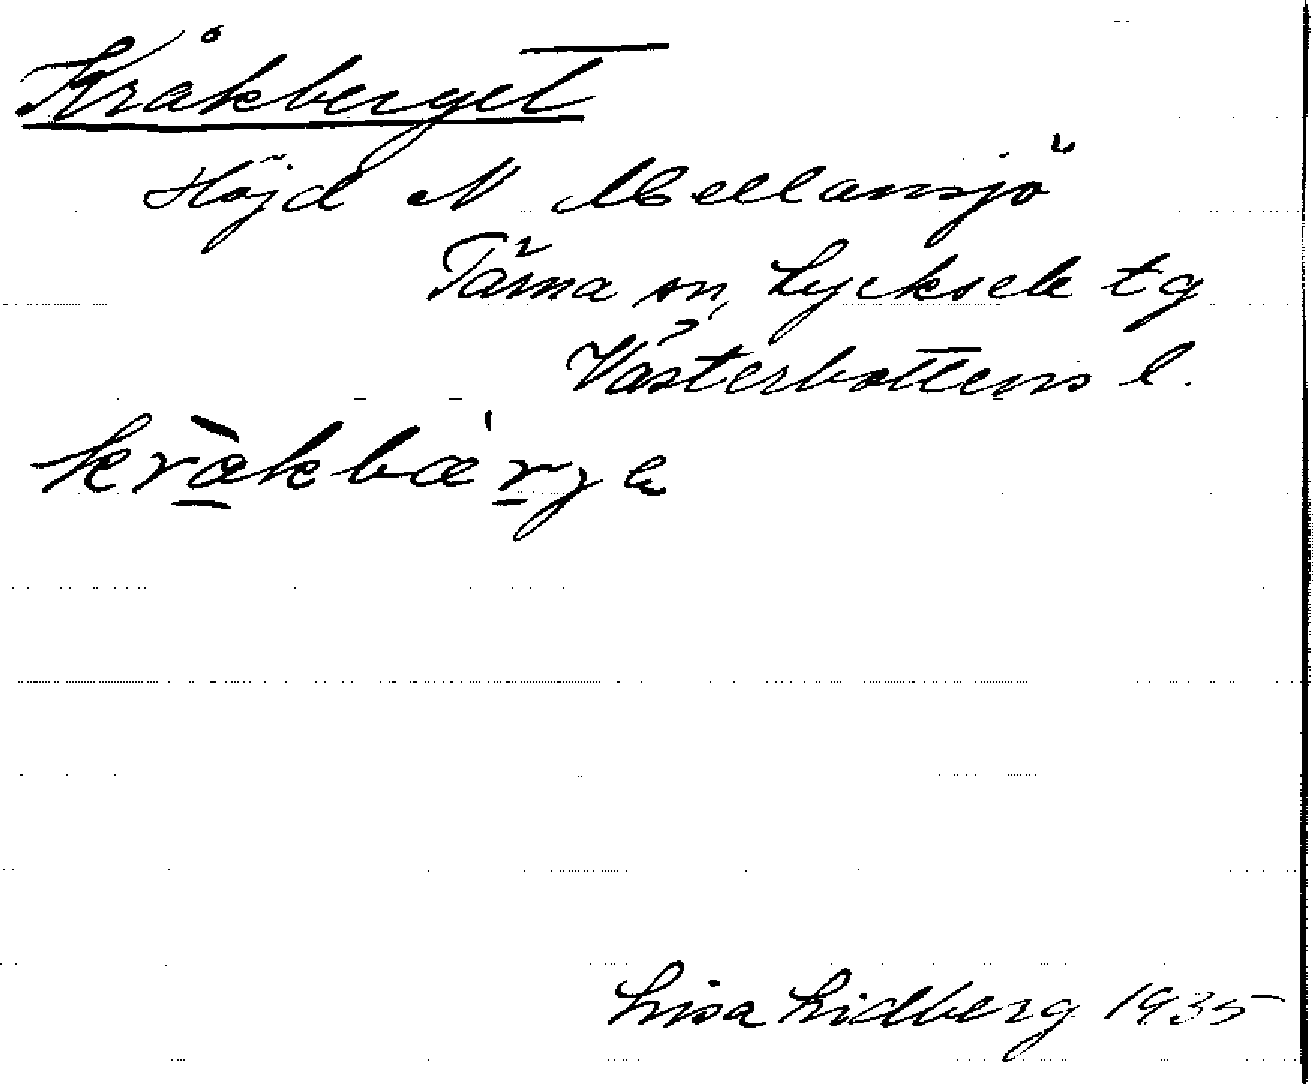 Kråkberget
Höjd N Mellansjö
Tärna sn, Lycksele tg
Västerbottens l.
kråkbærje
Lisa Lidberg 1935